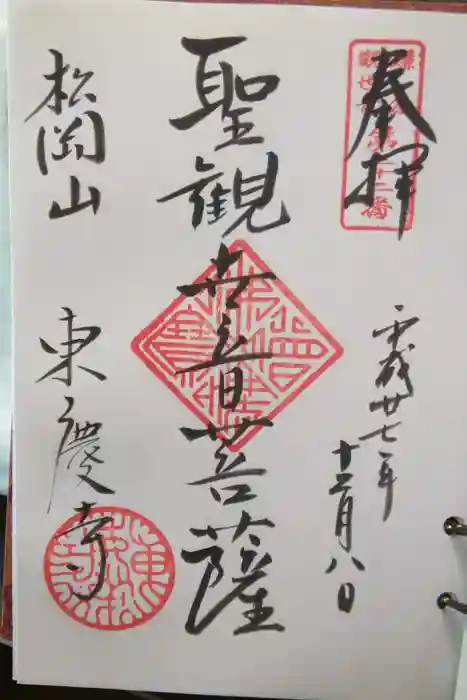 奉拝
平成廿七年
十二月八日
聖観世音菩薩
松岡山
東慶寺